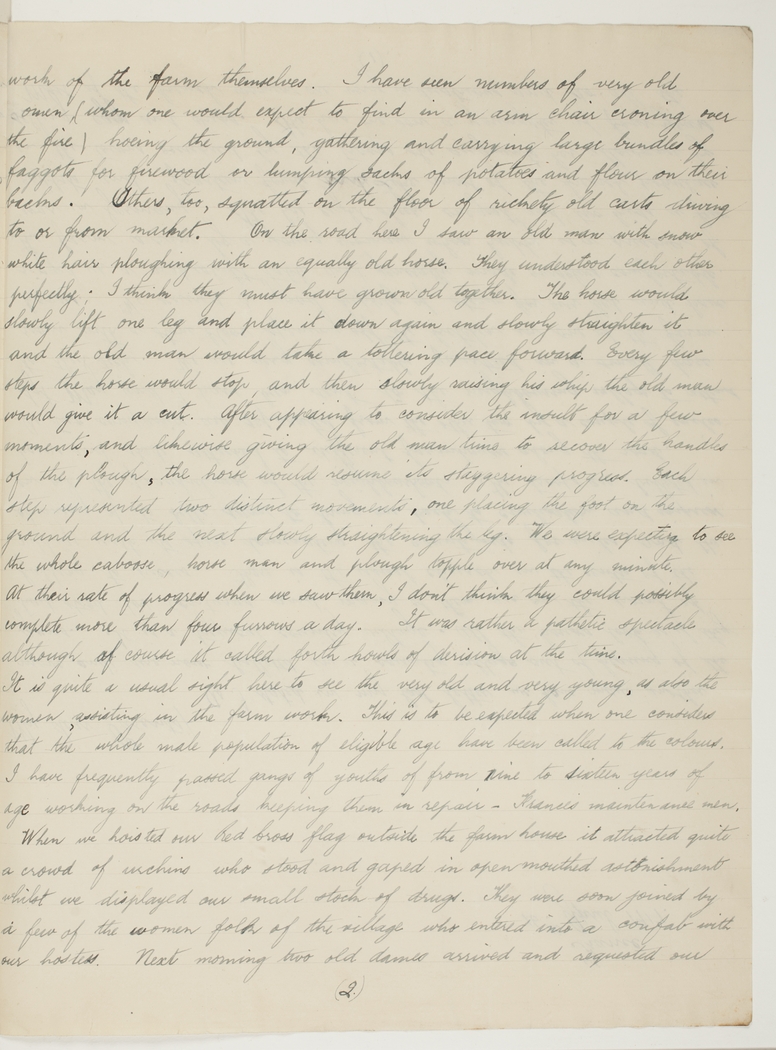 work of the farm themselves. I have seen numbers of very old
omen (whom one would expect to find in an arm chair croning over
the fire) hoeing the ground, gathering and carrying large bundles of
faggots for firewood or lumping sacks of potatoes and flour on their
backs. Others, too, squatted on the floor of rickety old carts driving
to or from market. On the road here I saw an old man with snow
white hair ploughing with an equally old horse. They understood each other
perfectly; I think they must have grown old together. The horse would
slowly lift one leg and place it down again and slowly straighten it
and the old man would take a tottering pace forward. Every few
steps the horse would stop, and then slowly raising his whip the old man
would give it a cut. After appearing to consider the insult for a few
moments, and likewise giving the old man time to recover the handles
of the plough, the horse would resume its staggering progress. Each
step represented two distinct movements, one placing the foot on the
ground and the next slowly straightening the leg. We were expecting to see
the whole caboose, horse man and plough topple over at any minute.
At their rate of progress when we saw them, I don't think they could possibly
complete more than four furrows a day. It was rather a pathetic spectacle
although of course it called forth howls of derision at the time.
It is quite a usual sight here to see the very old and very young, as also the
women, assisting in the farm work. This is to be expected when one considers
that the whole male population of eligible age have been called to the colours.
I have frequently passed gangs of youths of from nine to sixteen years of
age working on the roads keeping them in repair - France's maintenance men.
When we hoisted our Red Cross flag outside the farm house it attracted quite
a crowd of urchins who stood and gaped in open mouthed astonishment
whilst we displayed our small stock of drugs. They were soon joined by
a few of the women folk of the village who entered into a confab with
our hostess. Next morning two old dames arrived and requested our
(2.)